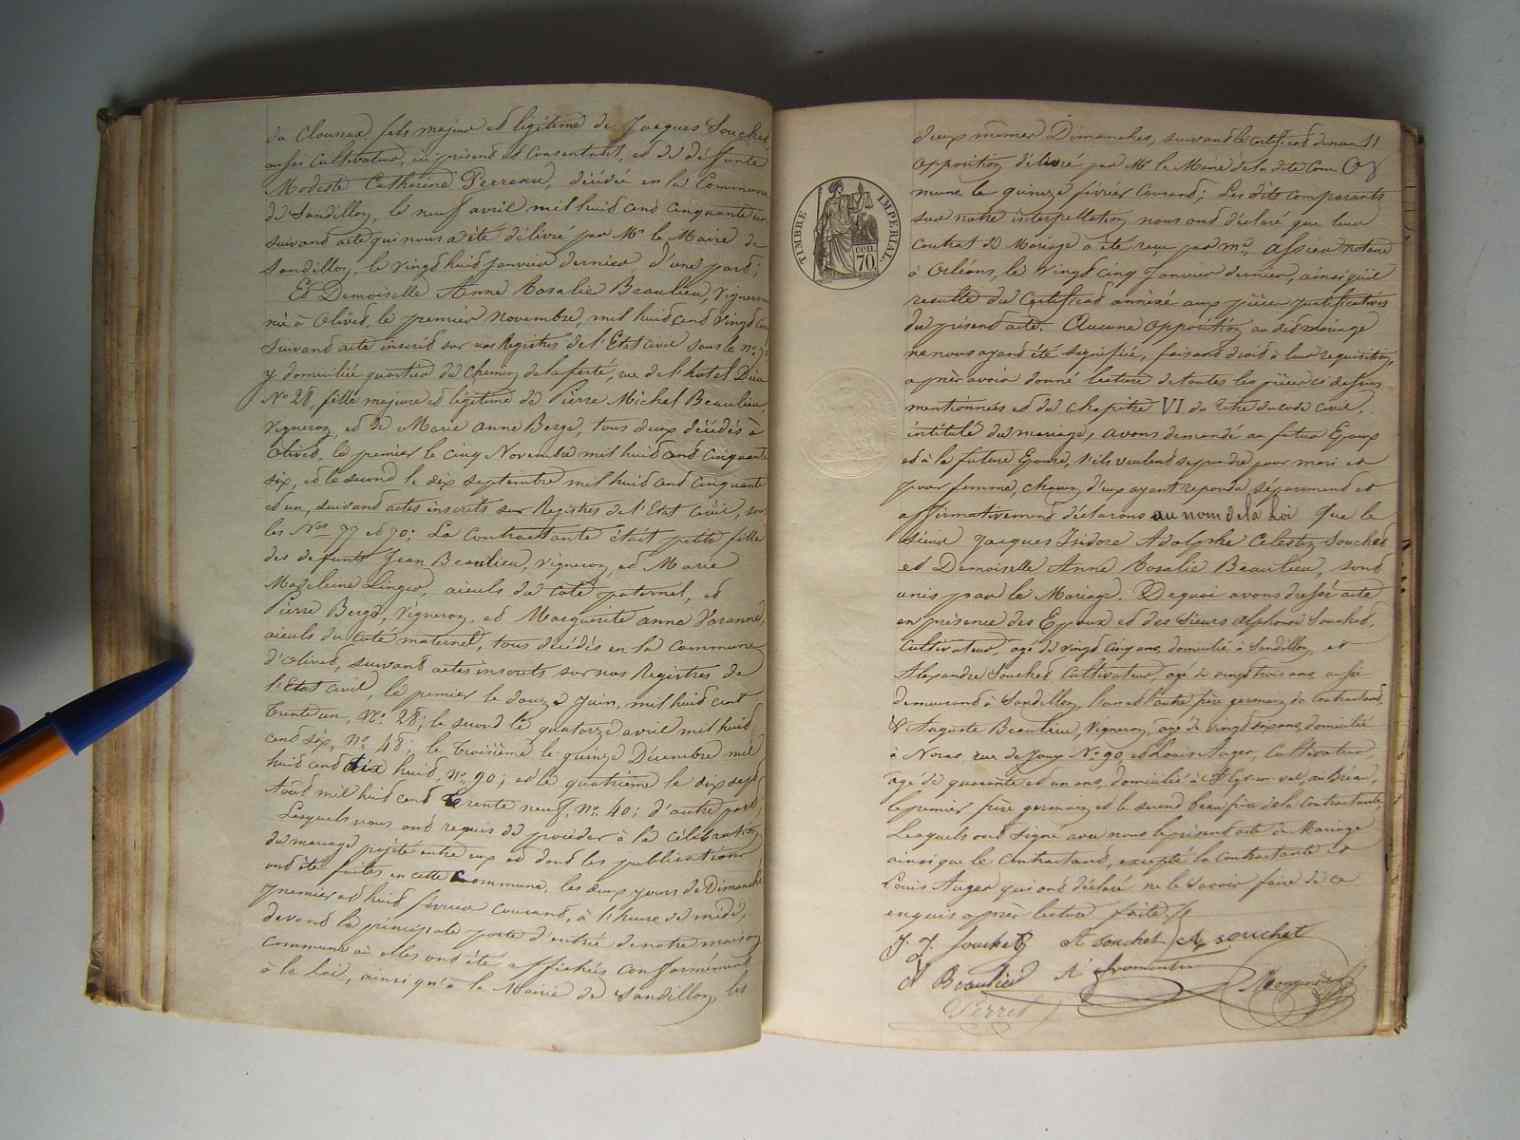 du Clouseau, fils majeur et légitime de Jacques Souchet,
aussi Cultivateur, ici présent et Consentant, et de défunte
Modeste Catherine Perreau, décédée en la Commune
de Sandillon, le neuf avril mil huit cent cinquante un
suivant acte qui nous a été délivré par Mr le Maire de
Sandillon, le vingt huit janvier dernier d'une part;
Et Demoiselle Anne Rosalie Beaulieu, Vigneronne
née à Olivet, le premier Novembre, mil huit cent vingt
suivant acte inscrit sur nos Registres de l'Etat civil sous le No
y domiciliée quartier du Chemin de la ferté, rue de l'hotel Dieu
No 28, fille majeure et légitime de Pierre Michel Beaulieu,
Vigneron, et de Marie Anne Berge, tous deux décédés à
Olivet, le premier le cinq Novembre mil huit cent cinquante
six, et le second le dix septembre mil huit cent cinquante
et un, suivant actes inscrits sur Registres de l'Etat civil, sous
les Nos 77 et 70; La Contractante était petite fille
des defunts Jean Beaulieu, Vigneron, et Marie
Magdeleine Linger, aieuls du coté paternel, et
Pierre Berge, Vigneron, et Marguerite Anne Varanne,
aieuls du coté maternel, tous décédés en la Commune
d'Olivet, suivant actes inscrits sur nos Registres de
l'Etat civil, le premier le douze Juin, mil huit cent
trente un, No 28; le second le quatorze avril mil huit
cent six, No 48; le troisième le quinze Décembre mil
huit cent dix huit, No 90; et le quatrième le dix sept
août mil huit cent trente neuf, No 40; d'autre part;
Lesquels nous ont requis de procéder à la célébration
du mariage projeté entre eux et dont les publications
ont été faites en cette Commune, les deux jours de Dimanche
premier et huit février courant, à l'heure de midi,
devant la principale porte d'entrée de notre maison
commune où elles ont été affichées conformément
à la loi, ainsi qu'à la Mairie de Sandillon, les
11
deux mêmes Dimanches, suivant le certificat de non
opposition délivré par Mr le Maire de la dite Com
mune le quinze février courant; Les dits comparants
sur notre interpellation nous ont déclaré que leur
Contrat de Mariage a été reçu par me Assier notaire
à Orléans, le vingt cinq Janvier dernier, ainsi qu'il
resulte du Certificat annéxé aux pièces justificatives
du présent acte. Aucune opposition au dit mariage
ne nous ayant été signifiée, faisant droit à leur requisition,
après avoir donné lecture de toutes les pièces ci dessus
mentionnées et du chapitre VI du titre du code civil,
intitulé du mariage, avons demandé au futur Epoux
et à la future Epouse, s'ils veulent se prendre pour mari et
pour femme, chacun d'eux ayant répondu séparement et
affirmativement déclarons au nom de la Loi que le
Sieur Jacques Isidore Adolphe Celestin Souchet
et Demoiselle Anne Rosalie Beaulieu, sont
unis par le Mariage. De quoi avons dressé acte
en présence des Epoux et des Sieurs Alphonse Souchet,
Cultivateur, agé de vingt cinq ans, domicilié à Sandillon, et
Alexandre Souchet Cultivateur, agé de vingt trois ans aussi
demeurant à Sandillon, l'un et l'autre frère germain du Contractant,
& Auguste Beaulieu, Vigneron, agé de vingt six ans, domicilié
à Noras, rue de Jouy No 90, et Louis Auger, Cultivateur,
agé de quarante et un ans, domicilié à St Cyr en val, au Bréau,
le premier frère germain et le second beau frère de la Contractante,
Lesquels ont signé avec nous le présent acte de Mariage
ainsi que le Contractant, excepté la Contractante et
Louis Auger qui ont déclaré ne le savoir faire de ce
enquis après lecture faite.
J. J. Souchet A Souchet A Souchet
A Beaulieu
Verret
TIMBRE IMPÉRIAL
cen. 70